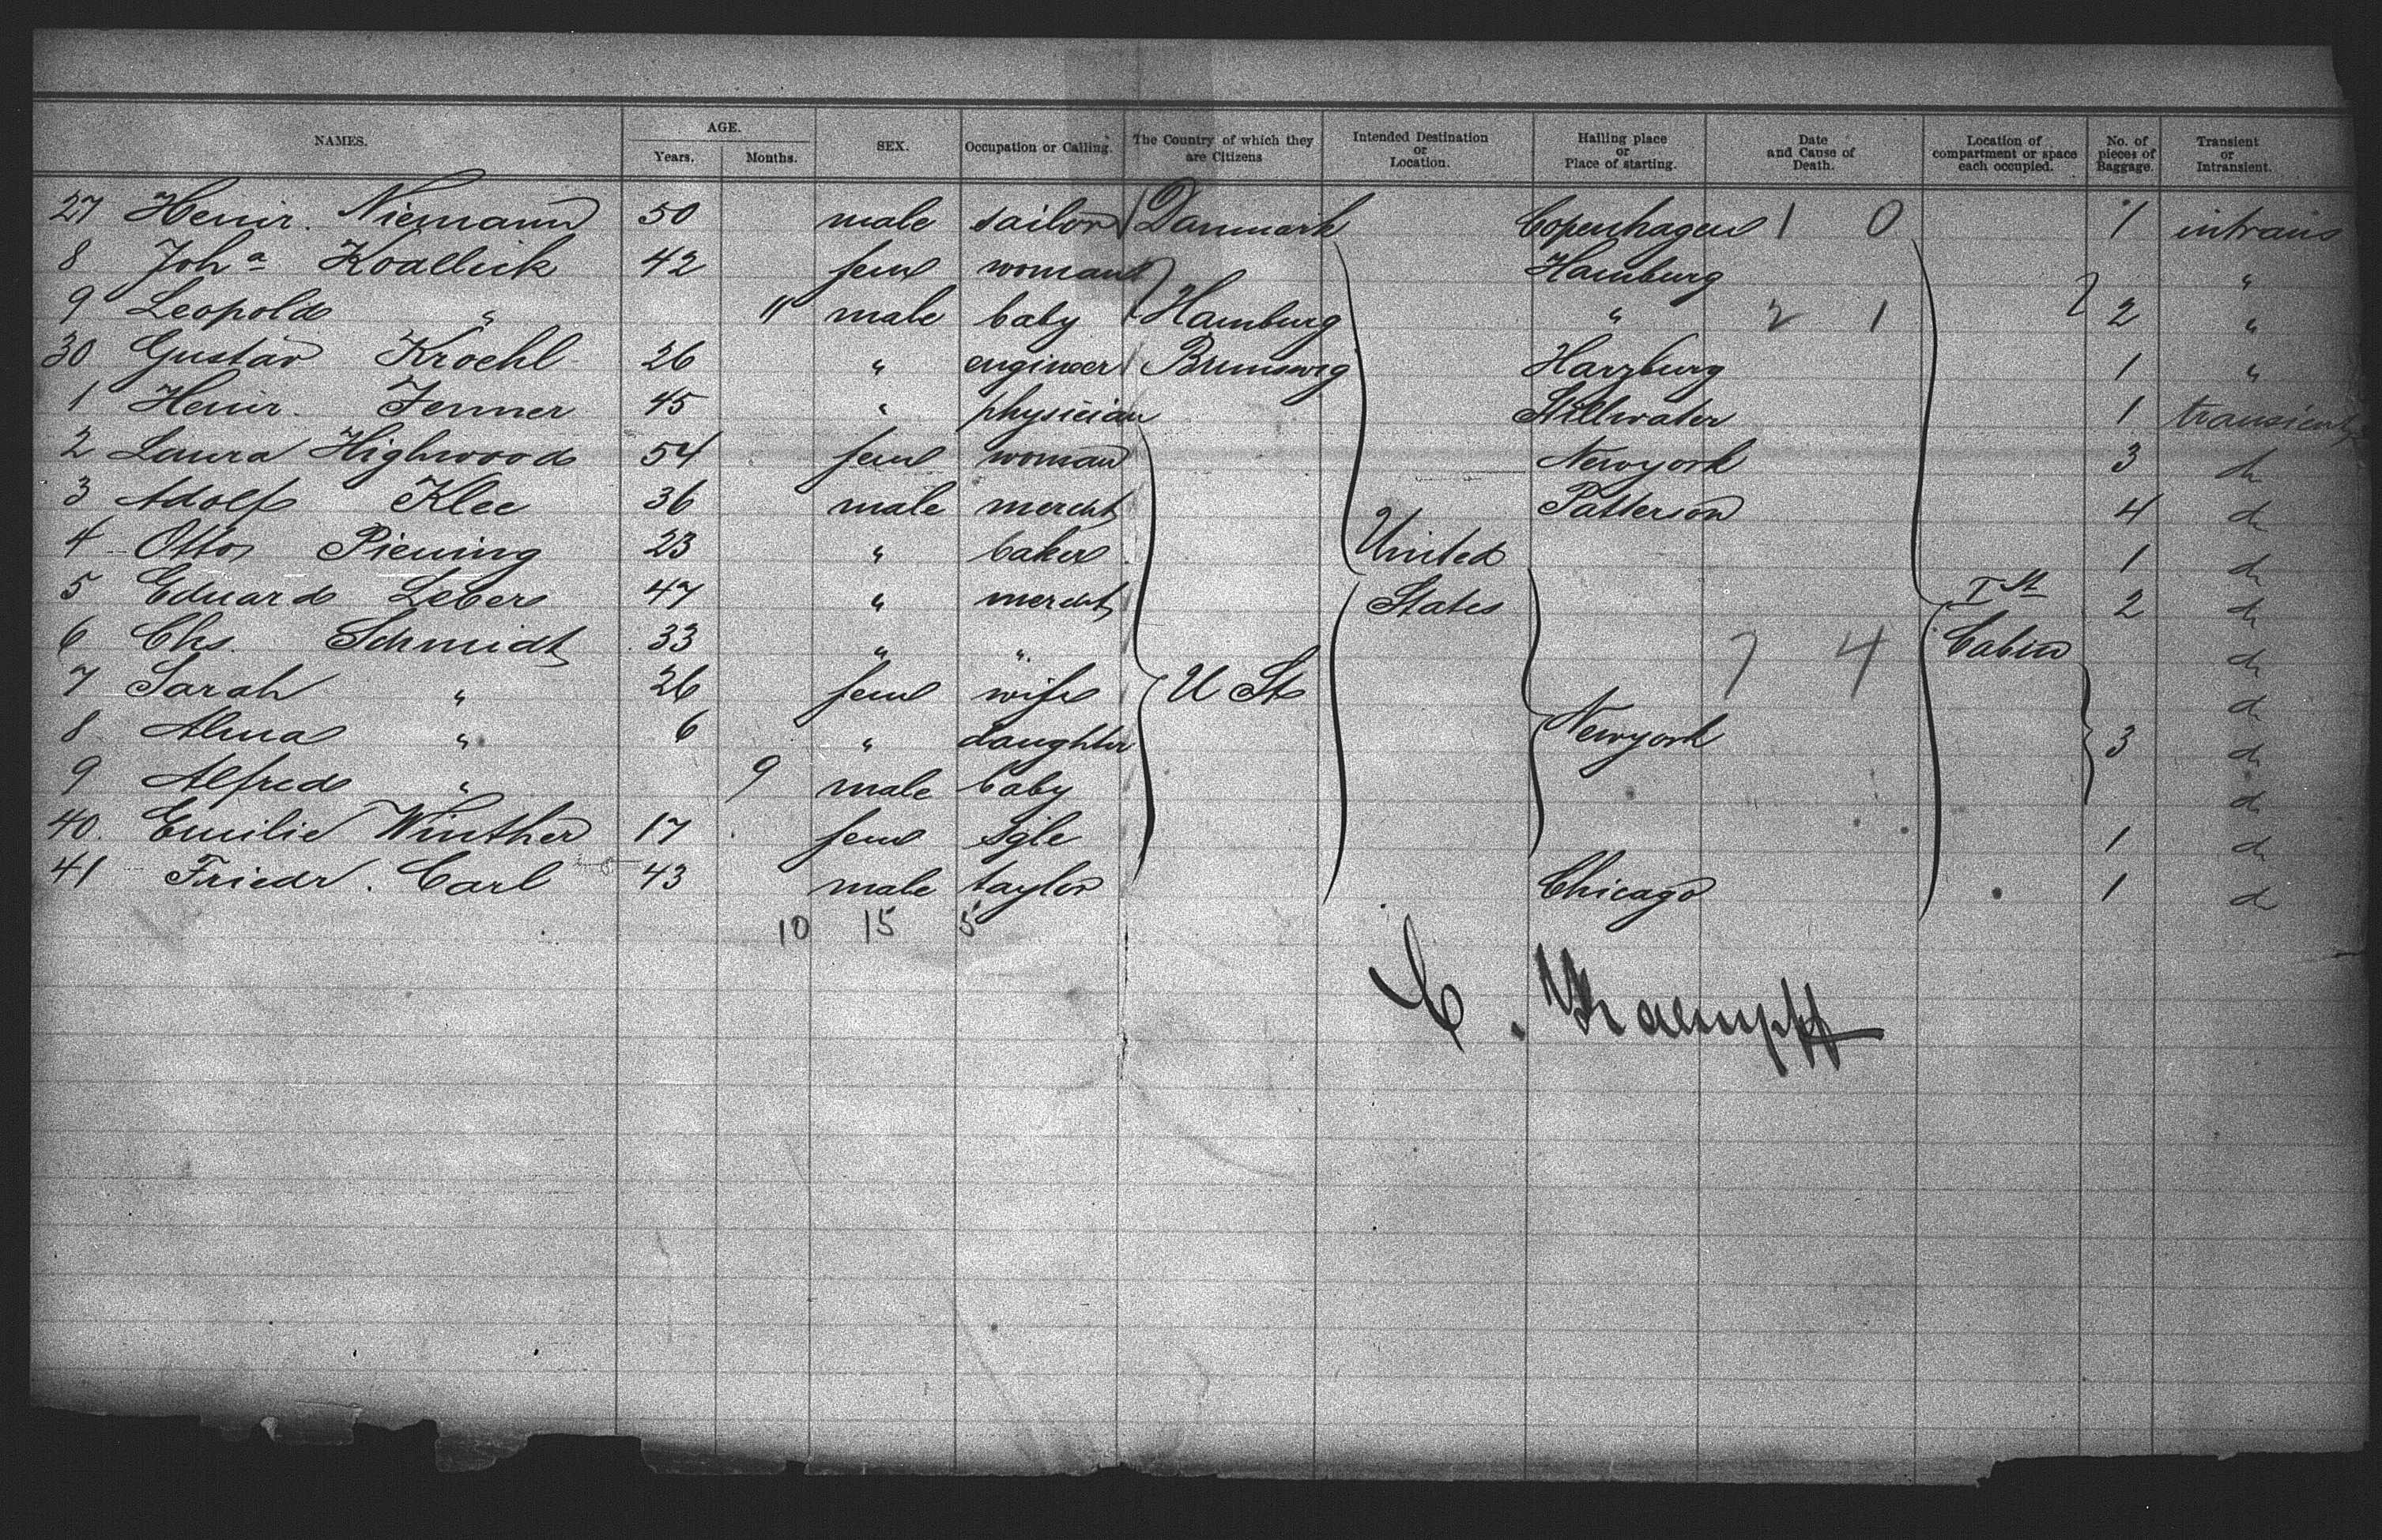 NAMES. AGE. Years. Months. SEX. Occupation or Calling. The Country of which they are Citizens Intended Destination or Location. Hailing place or Place of starting. Date and Cause of Death. Location of compartment or space each occupied. No. of pieces of Baggage. Transient or Intransient.
27 Heinr. Niemann 50 male sailor Danmark Copenhagen 1 0 1 intrans
8 Joh a Koallick 42 feml woman Hamburg "
9 Leopold " 11 male baby Hamburg " 2 1 2 "
30 Gustav Kroehl 26 " engineer Brunswig Harzburg 1 "
1 Heinr. Jenner 45 " physician Stillwater 1 transient
2 Laura Highwood 54 feml woman Newyork 3 do
3 Adolf Klee 36 male mercht Patterson 4 do
4 Otto Piening 23 " baker United 1 do
5 Eduard Leber 47 " mercht States I St 2 do
6 Chs. Schmidt 33 " " 7 4 Cabin do
7 Sarah " 26 feml wife U St do
8 Alma " 6 " daughter Newyork 3 do
9 Alfred " 9 male baby do
40. Emilie Winther 17 feml Sgle 1 do
41 Friedr. Carl 43 male taylor Chicago 1 do
10 15 5
C. Kaempff